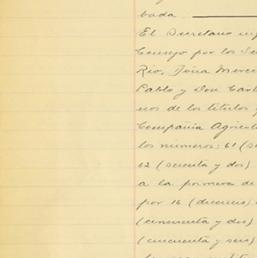 bada.
El Secretario in
Consejo por los Se
Río, Doña Merce
Pablo y Don Carl
nos de los títulos
Compañía Agrícol
los números: 61 (s
62 (sesenta y dos)
a la primera de
por 16 (dieciseis)
(cincuenta y dos)
(cincuenta y seis)